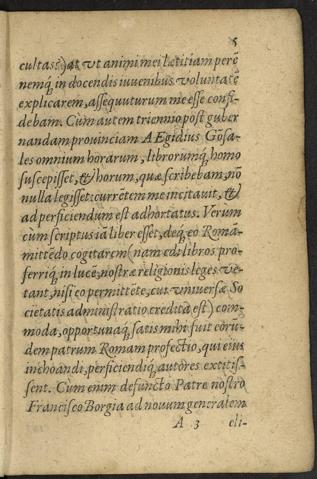 5
cultas:) at vt animi mei lætitiam perē
nemq́; in docendis iuuenibus voluntatē
explicarem, assequuturum me esse confi-
debam. Cùm autem triennio pòst guber
nandam prouinciam AEgidius Gōsa-
les omnium horarum, librorumq́; homo
suscepisset, & horum, quæ scribebam, nō
nulla legisset: currētem me incitauit, &
ad perficiendum est adhortatus. Verum
cum scriptus iā liber esset, deq́; eo Romā-
mittēdo cogitarem (nam edi libros pro-
ferriq́; in lucē, nostræ religionis leges ve-
tant, nisi eo permittēte, cui vniuersæ So
cietatis administratio credita est) com-
moda, opportunaq́; satis mihi fuit eorū-
dem patrum Romam profectio, qui eius
inchoandi, perficiendiq́; autores extitis-
sent. Cum enim defuncto Patre nostro
Francisco Borgia ad nouum generalem
A 3 eli-